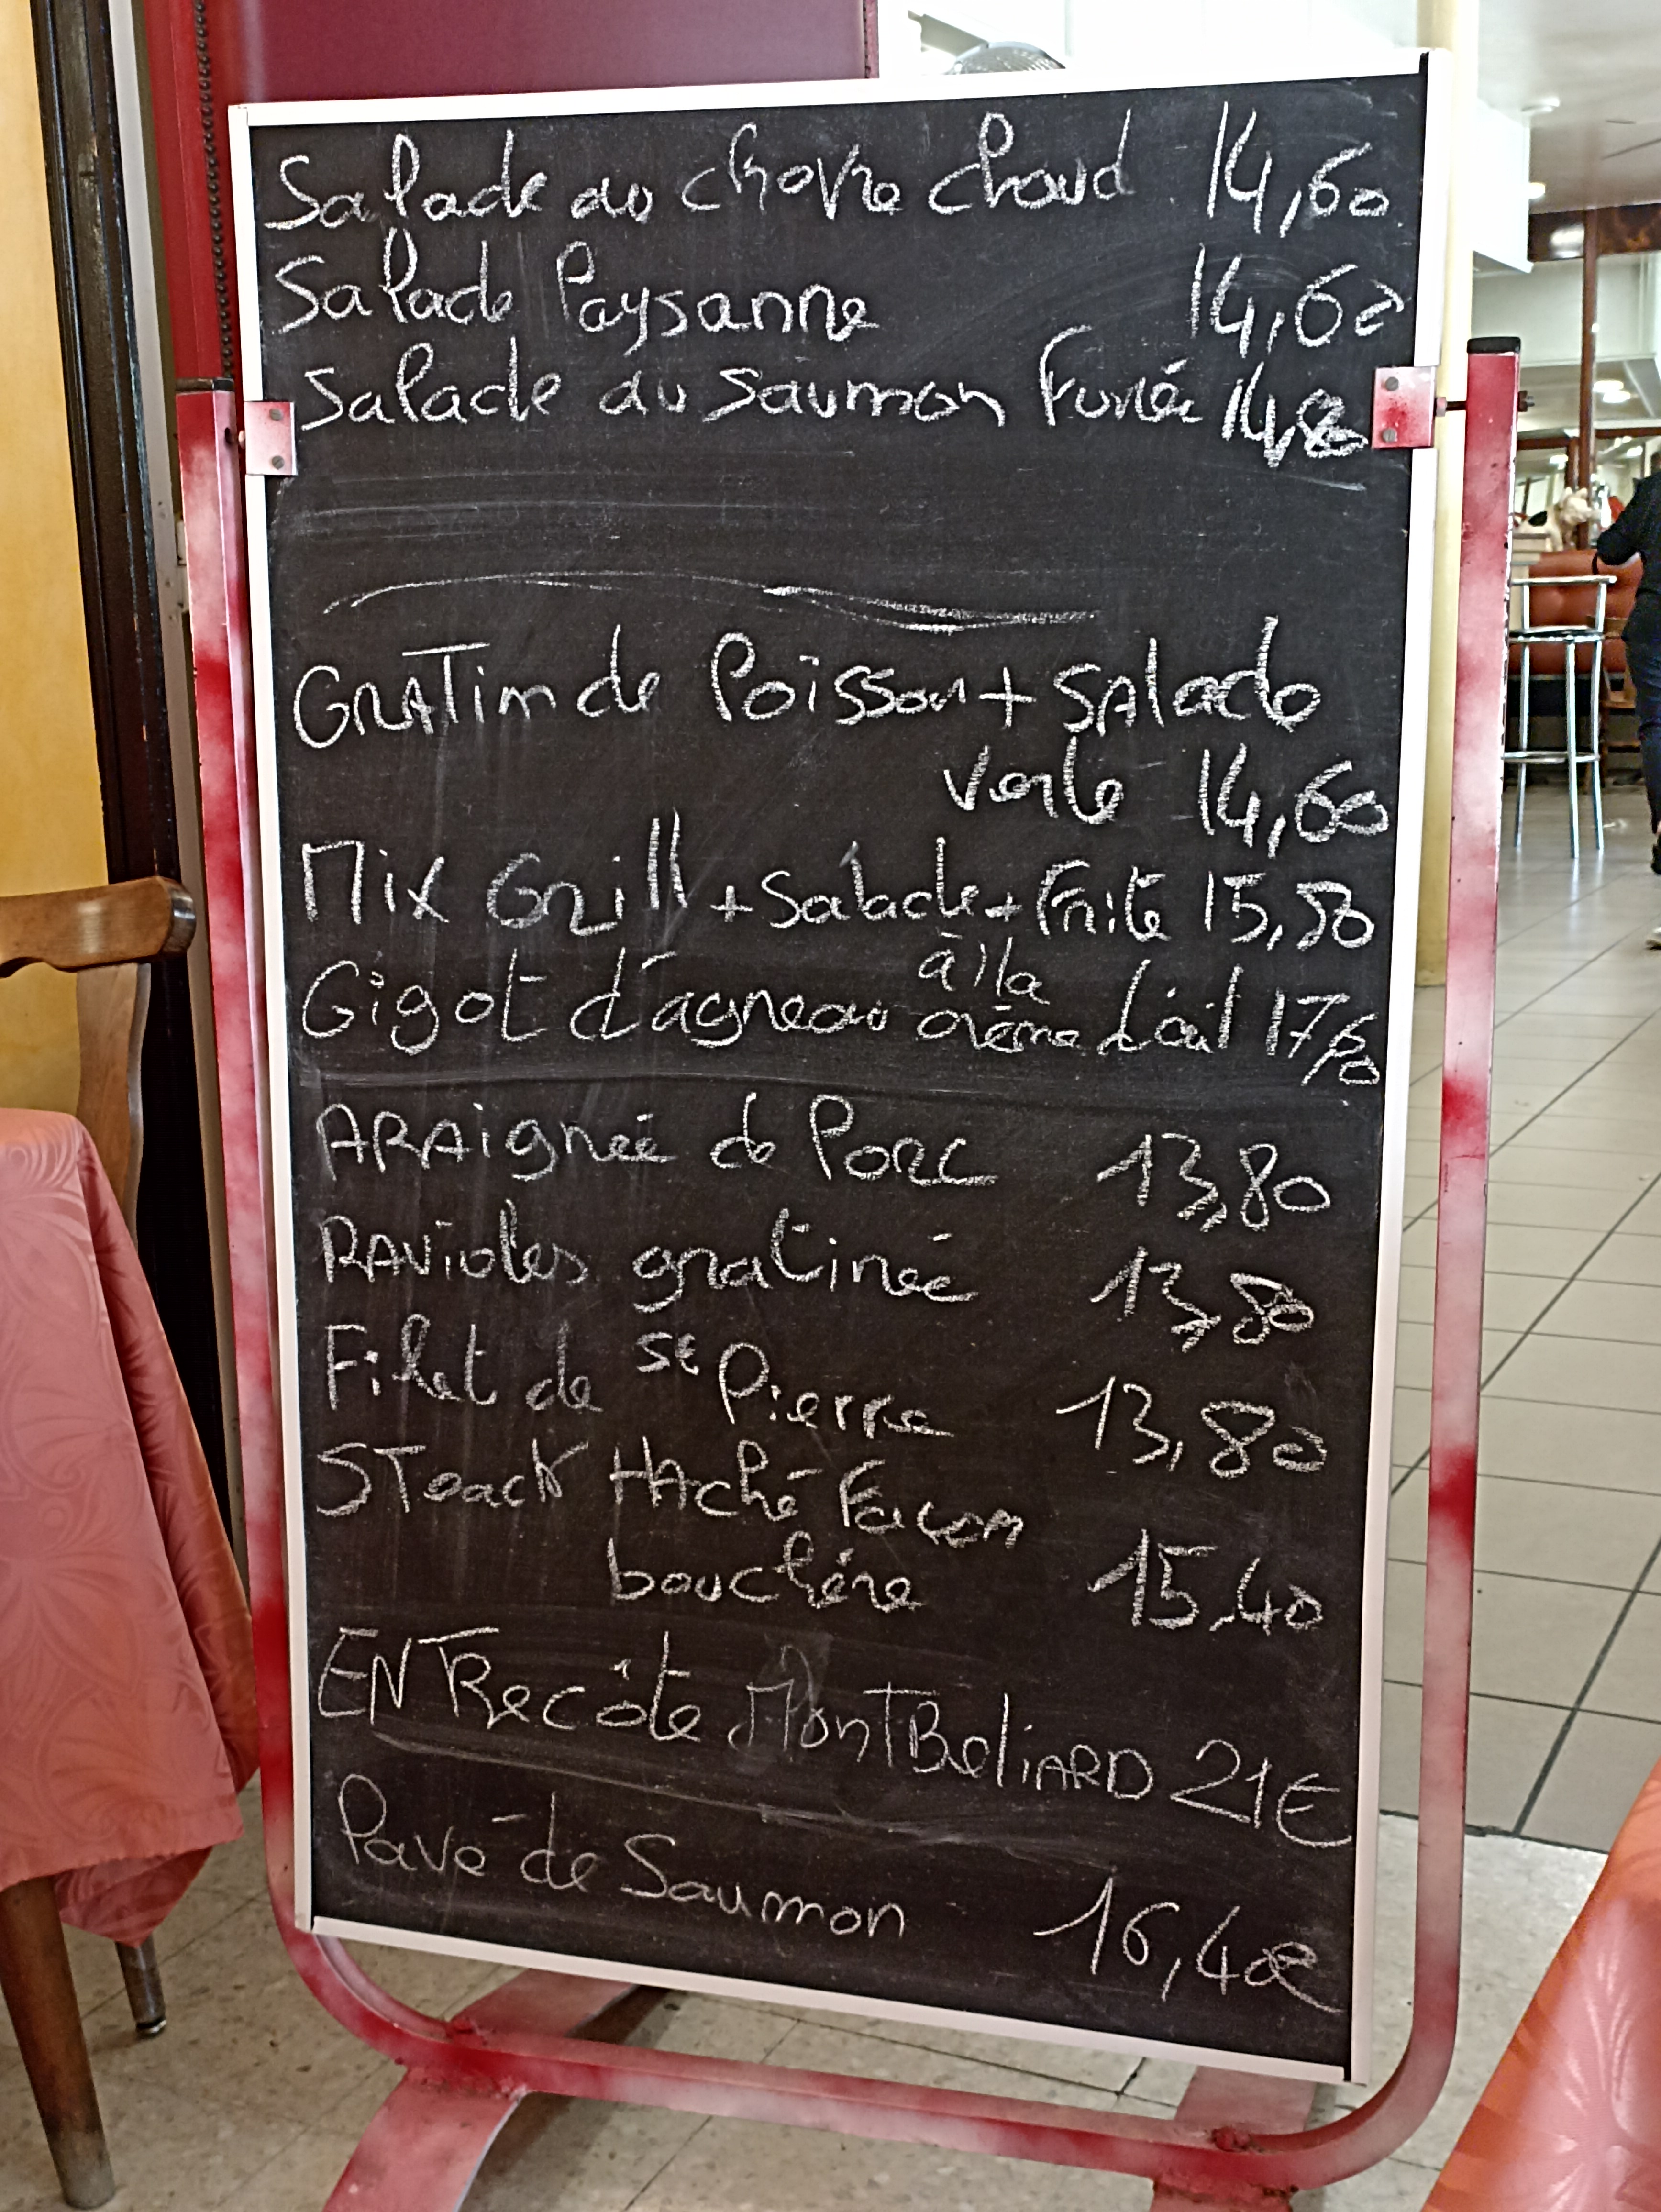 Salade au chèvre chaud 14,60
Salade Paysanne 14,60
Salade au Saumon Fumée 14,80
GRATin de Poisson + SAlade
verte 14,60
Mix Grill + Salade + Frite 15,50
à la
Gigot d'agneau crème d'ail 17,80
ARAignée de Porc 13,80
RAVioles gratinée 13,80
Filet de St Pierre 13,80
STeack HAché Façon
bouchère 15,40
ENTRecôte MonTBeliARD 21€
Pavé de Saumon 16,40€